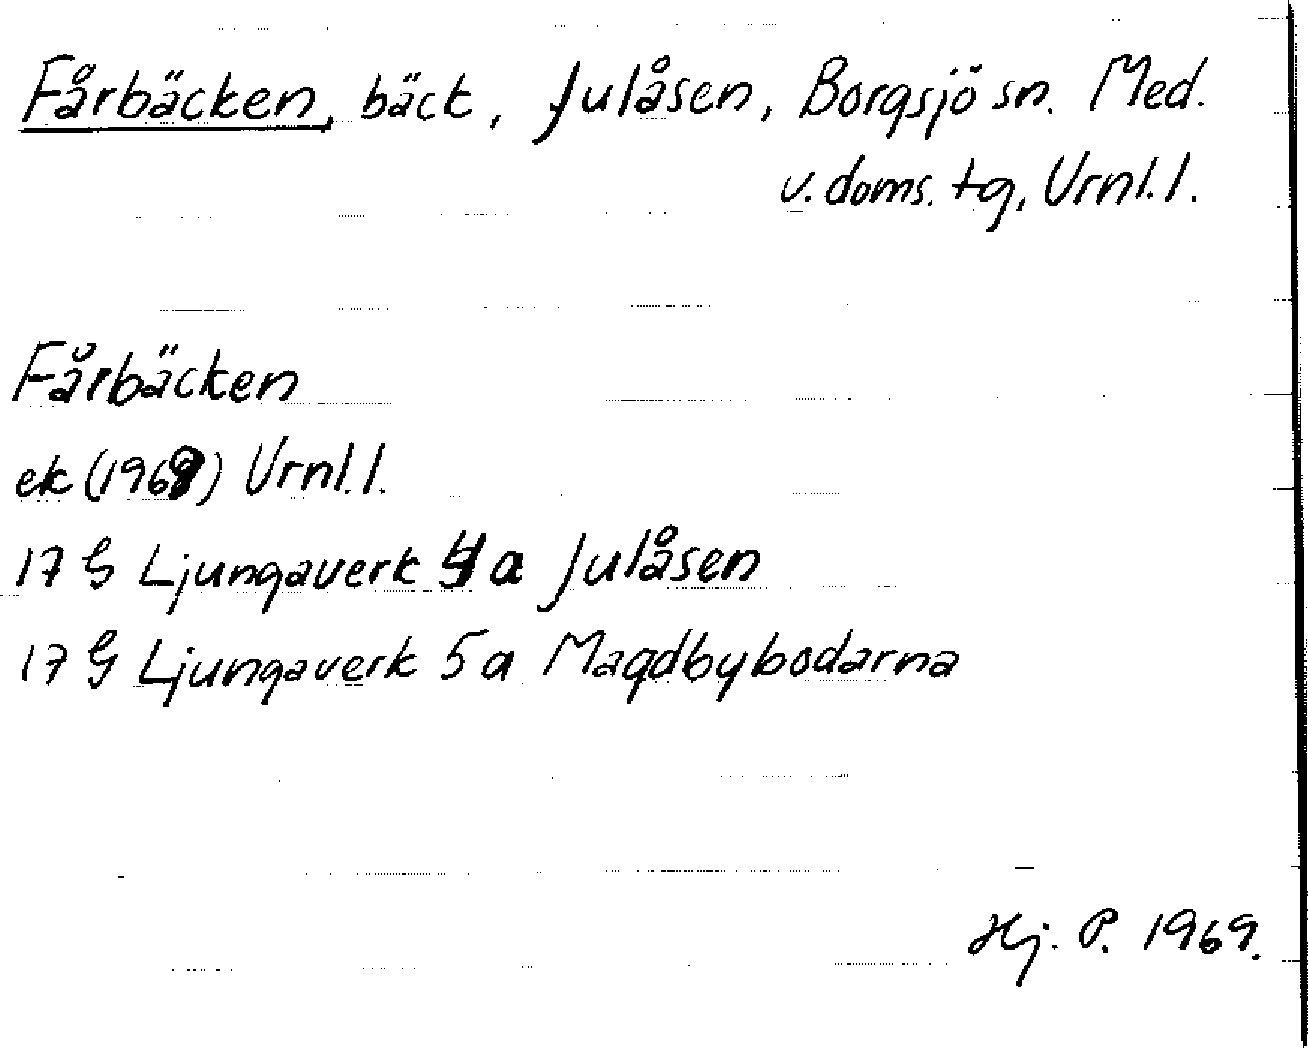 Fårbäcken, bäck, Julåsen, Borgsjö sn. Med.
v. doms. tg, Urnl. l.
Fårbäcken
ek (1969) Urnl. l.
17 G Ljungaverk 4 a Julåsen
17 G Ljungaverk 5 a Magdbybodarna
Hj. P. 1969.